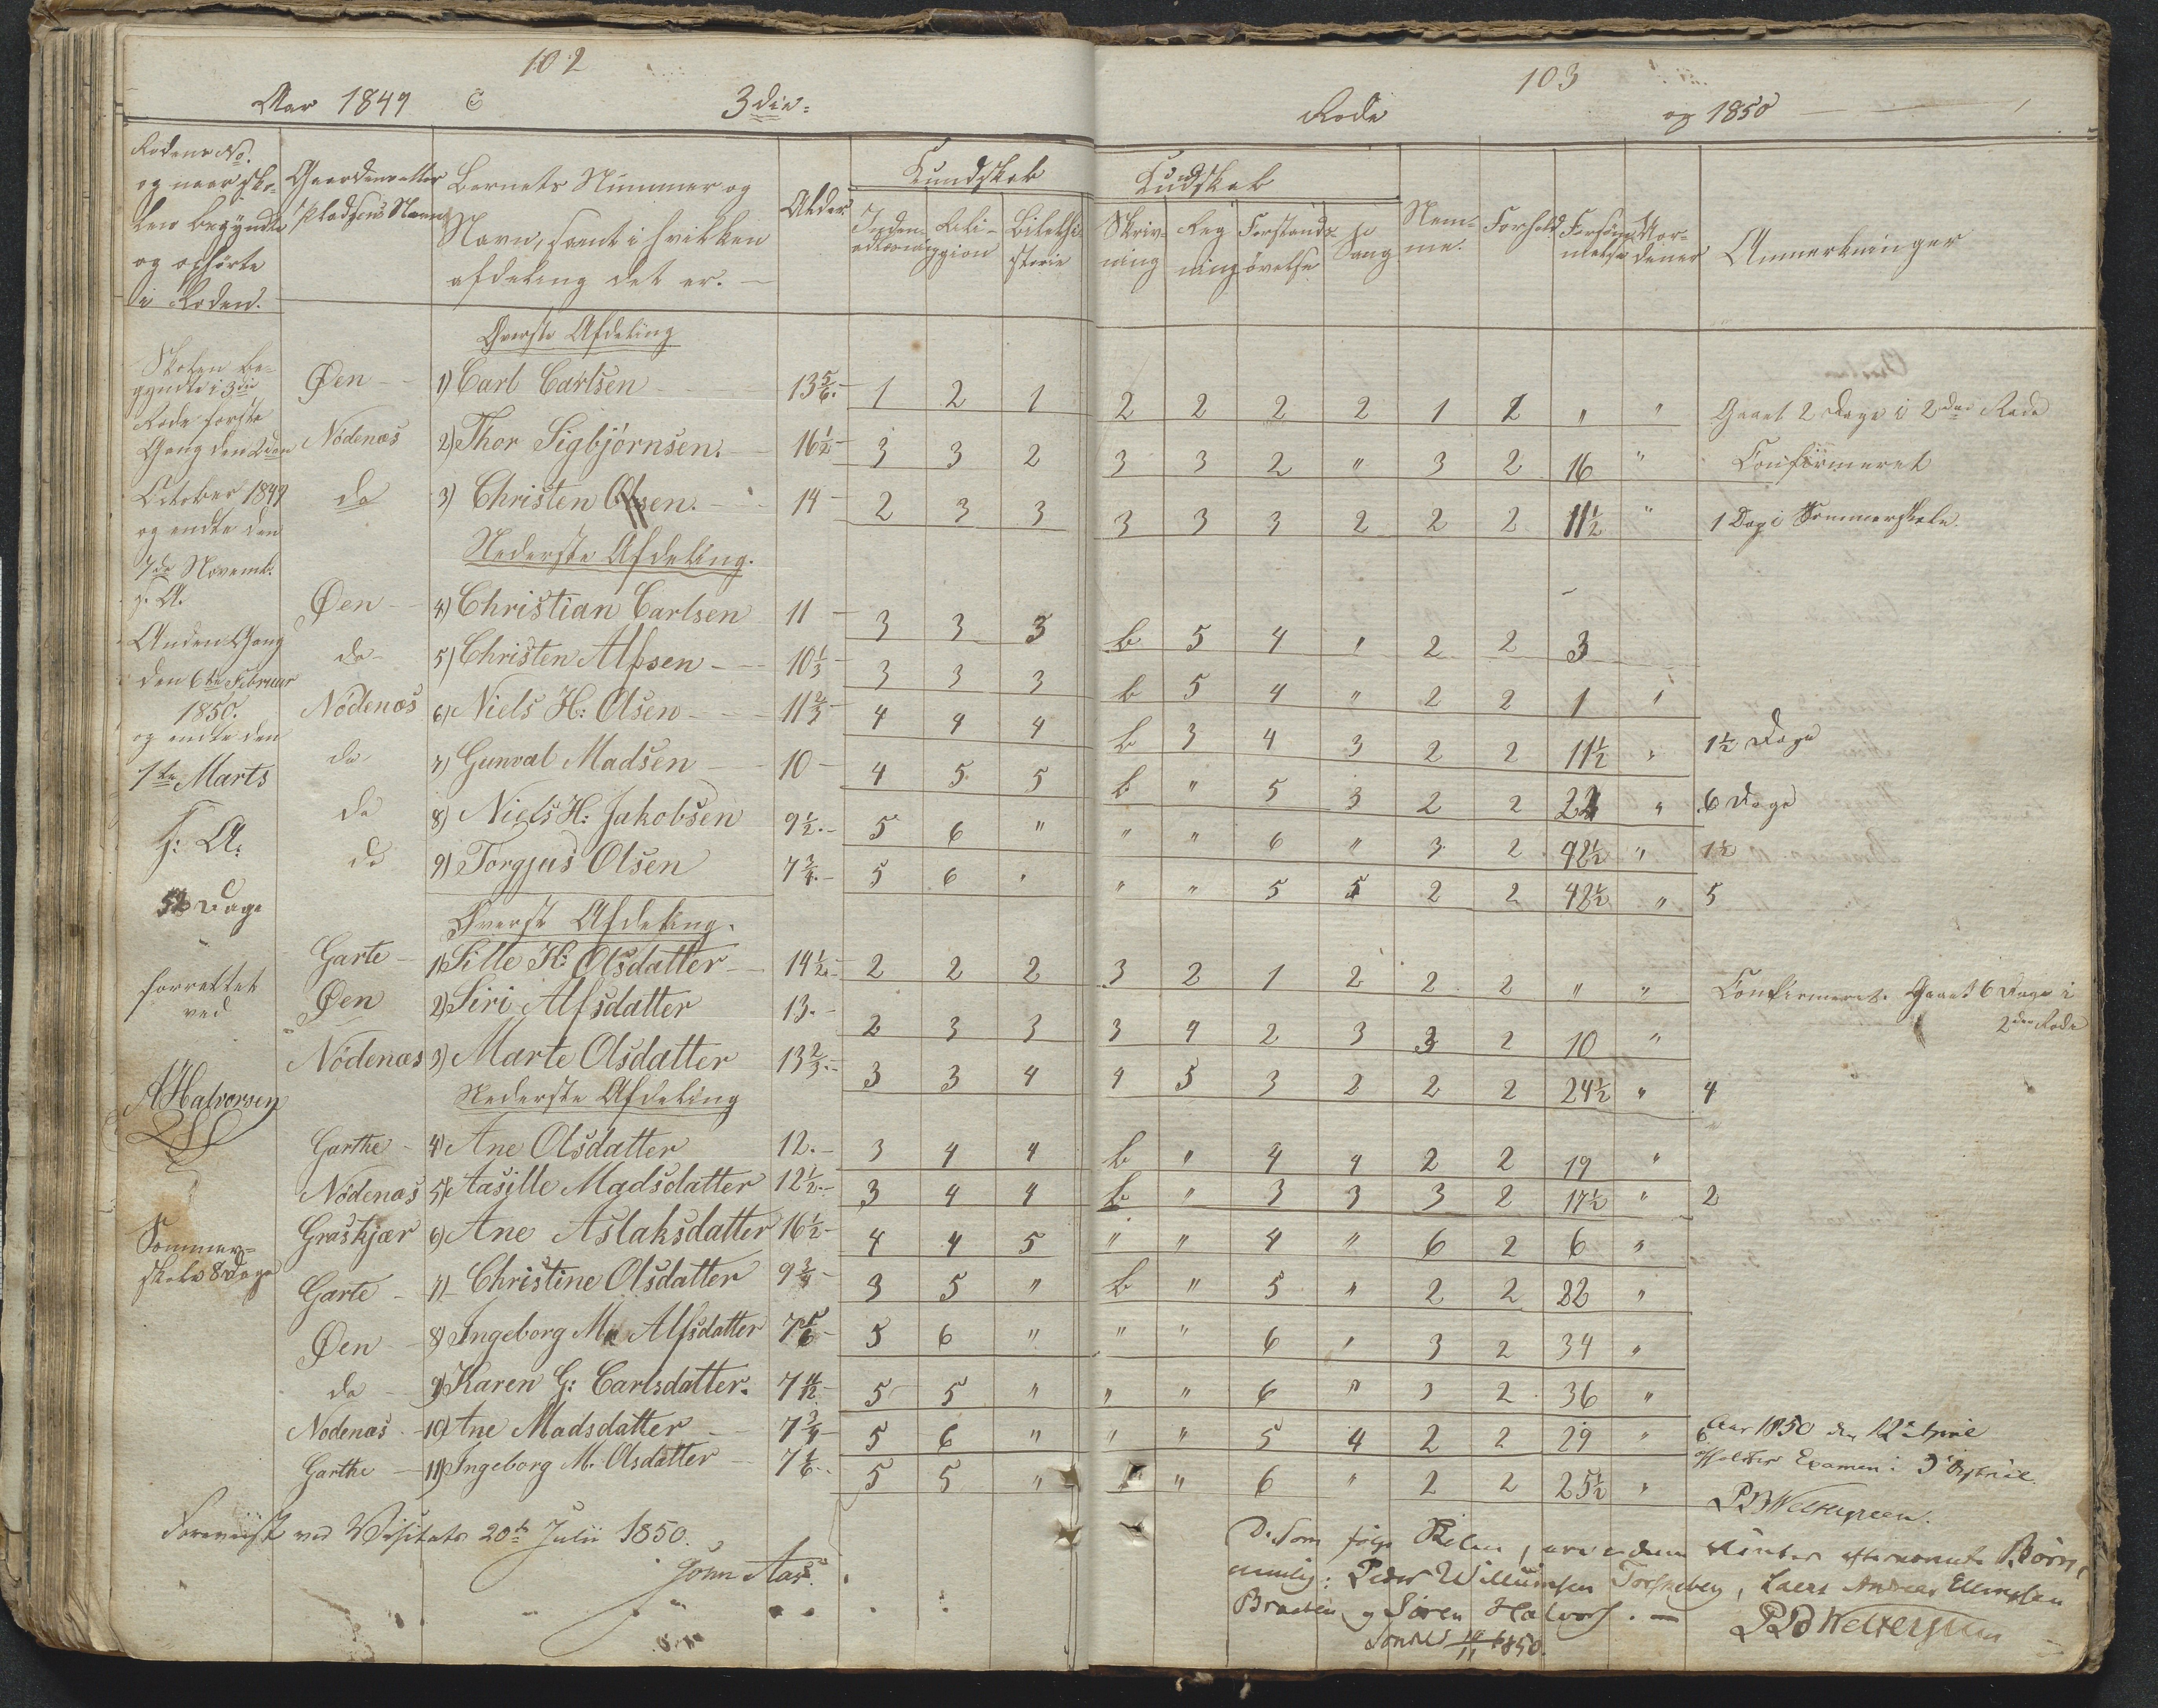 102
Aar 1849 3die
Rodens No. og naar Sko-
len begyndte
og ophörte
i Roden.
Gaardens eller
Pladsens Navn
Barnets Nummer og
Navn, samt i hvilken
afdeling det er.
Alder
Kundskab
Inden-
adlæsning
Reli-
gion
Bibelhi-
storie
Øverste Afdeling
Skolen be-
gyndte i 3die
Rode förste
Gang den 2den
October 1849
og endte den
7de Novemb.
s. A.
Anden Gang
den 6te Februar
1850.
og endte den
1ste Marts
s: A:
Dage
forrettet
ved
AHalvorsen
Sommer-
skole 8 Dage
Øen 1) Carl Carlsen 13 5/6 1 2 1
Nödenæs 2) Thor Sigbjörnsen. 16 1/2 3 3 2
do 3) Christen Olsen. 14 2 3 3
Nederste Afdeling.
Øen 4) Christian Carlsen 11 3 3 3
do 5) Christen Alfsen 10 1/3 3 3 3
Nödenæs 6) Niels H: Olsen 11 2/3 4 4 4
do 7) Gunval Madsen 10 4 5 5
do 8) Niels H: Jakobsen 9 1/2 5 6 "
do 9) Torgjus Olsen 7 3/4 5 6 "
Øverste Afdeling.
Garte 1) Sille K: Olsdatter 14 1/2 2 2 2
Øen 2) Siri Alfsdatter 13. 2 3 3
Nödenæs 3) Marte Olsdatter 13 2/3 3 3 4
Nederste Afdeling
Garthe 4) Ane Olsdatter 12. 3 4 4
Nödenæs 5) Aasille Madsdatter 12 1/2 3 4 4
Graskjær 6) Ane Aslaksdatter 16 1/2 4 4 5
Garte 7) Christine Olsdatter 9 3/4 3 5 "
Øen 8) Ingeborg M. Alfsdatter 7 5/6 5 6 "
do 9) Karen G: Carlsdatter. 7 5 5 "
Nodenæs 10) Ane Madsdatter 7 3/4 5 6 "
Garthe 11) Ingeborg M. Olsdatter 7 1/6 5 5 "
Foreviist ved Visitats 20de Julii 1850.
John Aas.
103
Rode og 1850
Kundskab
Skriv-
ning
Reg
ning
Forstands-
övelse
Sang
Nem-
me.
Forhold
Forsöm-
melse
Mor-
dener
Anmerkninger
2 2 2 2 1 2 " " Gaaet 2 Dage i 2den Rode
3 3 2 " 3 2 16 " Confirmeret
3 3 3 2 2 2 11 1/2 " 1 Dag i Sommerskole
b 5 4 " 2 2 3
b 5 4 " 2 2 1 "
b 3 4 3 2 2 11 1/2 " 1 1/2 Dage
b " 5 3 2 2 22 " 6 Dage
" " 6 " 3 2 42 1/2 " 1 1/2
" " 5 5 2 2 42 1/2 " 5
3 2 1 2 2 2 " " Confirmeret. Gaaet 6 Dage i
2den Rode
3 4 2 3 3 2 10 "
4 5 3 2 2 2 24 1/2 " 4
b " 4 4 2 2 19 "
b " 3 3 3 2 17 1/2 " 2
" " 4 " 6 2 6 "
b " 5 " 2 2 22 "
" " 6 " 3 2 34 "
" " 6 " 3 2 36 "
" " 5 4 2 2 29 "
" 6 " 2 2 25 1/2 "
Aar 1850 den 12te April
afholdtes Examen i 3 Distrikt
PBWettergreen.
De som følge Skolen, ere Børn,
nemlig: Peder Willumsen, Lars Andreas Ellingsen
Braaten og Søren Halvors. —
1850.
PBWettergreen